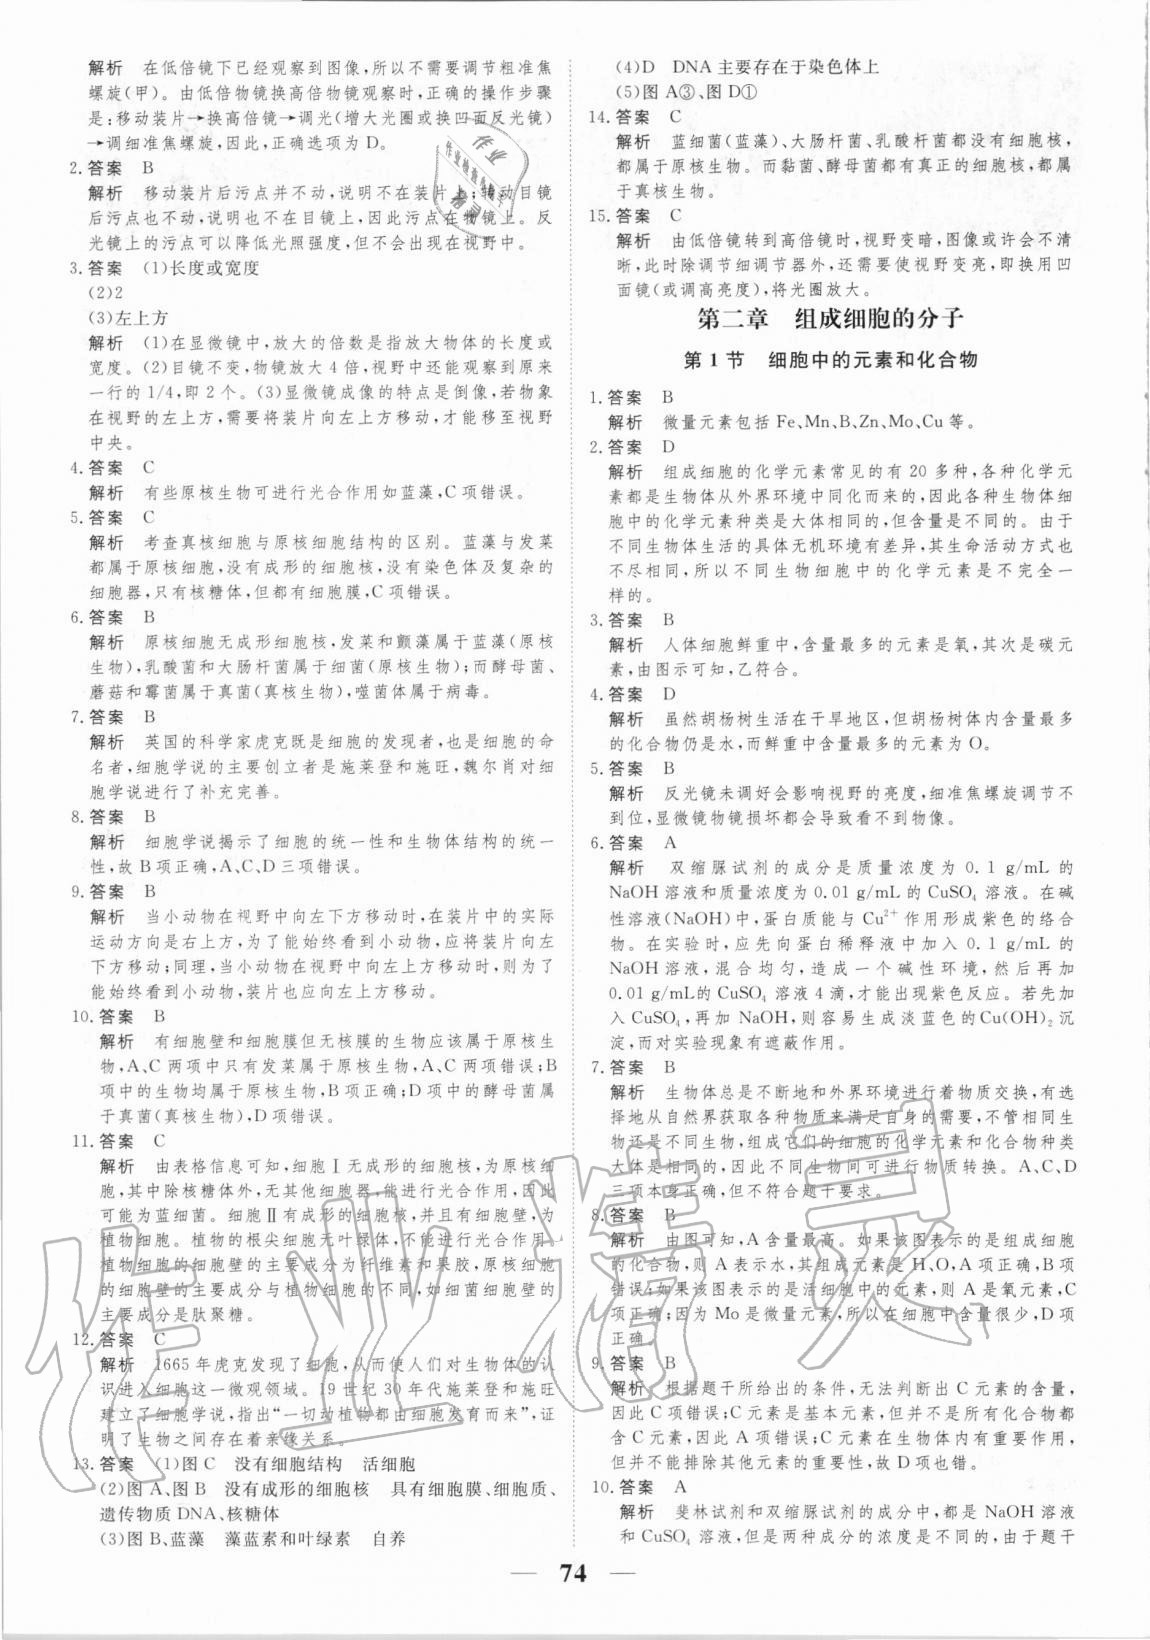 解析　在低倍镜下已经观察到图像,所以不需要调节粗准焦
螺旋(甲)。由低倍物镜换高倍物镜观察时,正确的操作步骤
是:移动装片→换高倍镜→调光(增大光圈或换凹面反光镜)
→调细准焦螺旋,因此,正确选项为 D。
2. 答案　B
解析　移动装片后污点并不动,说明不在装片上;转动目镜
后污点也不动,说明也不在目镜上,因此污点在物镜上。反
光镜上的污点可以降低光照强度,但不会出现在视野中。
3. 答案　(1)长度或宽度
(2)2
(3)左上方
解析　(1)在显微镜中,放大的倍数是指放大物体的长度或
宽度。(2)目镜不变,物镜放大 4 倍,视野中还能观察到原来
一行的 1/4,即 2 个。(3)显微镜成像的特点是倒像,若物象
在视野的左上方,需要将装片向左上方移动,才能移至视野
中央。
4. 答案　C
解析　有些原核生物可进行光合作用如蓝藻,C 项错误。
5. 答案　C
解析　考查真核细胞与原核细胞结构的区别。蓝藻与发菜
都属于原核细胞,没有成形的细胞核,没有染色体及复杂的
细胞器,只有核糖体,但都有细胞膜,C 项错误。
6. 答案　B
解析　原核细胞无成形细胞核,发菜和颤藻属于蓝藻(原核
生物),乳酸菌和大肠杆菌属于细菌(原核生物);而酵母菌、
蘑菇和霉菌属于真菌(真核生物),噬菌体属于病毒。
7. 答案　B
解析　英国的科学家虎克既是细胞的发现者,也是细胞的命
名者,细胞学说的主要创立者是施莱登和施旺,魏尔肖对细
胞学说进行了补充完善。
8. 答案　B
解析　细胞学说揭示了细胞的统一性和生物体结构的统一
性,故 B 项正确,A、C、D 三项错误。
9. 答案　B
解析　当小动物在视野中向左下方移动时,在装片中的实际
运动方向是右上方,为了能始终看到小动物,应将装片向左
下方移动;同理,当小动物在视野中向左上方移动时,则为了
能始终看到小动物,装片也应向左上方移动。
10. 答案　B
解析　有细胞壁和细胞膜但无核膜的生物应该属于原核生
物,A、C 两项中只有发菜属于原核生物,A、C 两项错误;B
项中的生物均属于原核生物,B 项正确;D 项中的酵母菌属
于真菌(真核生物),D 项错误。
11. 答案　C
解析　由表格信息可知,细胞Ⅰ无成形的细胞核,为原核细
胞,其中除核糖体外,无其他细胞器,能进行光合作用,因此
可能为蓝细菌。细胞Ⅱ有成形的细胞核,并且有细胞壁,为
植物细胞。植物的根尖细胞无叶绿体,不能进行光合作用。
植物细胞的细胞壁的主要成分为纤维素和果胶,原核细胞
的细胞壁的主要成分与植物细胞的不同,如细菌细胞壁的
主要成分是肽聚糖。
12. 答案　C
解析　1665 年虎克发现了细胞,从而使人们对生物体的认
识进入细胞这一微观领域。19 世纪 30 年代施莱登和施旺
建立了细胞学说,指出“一切动植物都由细胞发育而来”,证
明了生物之间存在着亲缘关系。
13. 答案　(1)图 C　没有细胞结构　活细胞
(2)图 A、图 B　没有成形的细胞核　具有细胞膜、细胞质、
遗传物质 DNA、核糖体
(3)图 B、蓝藻　藻蓝素和叶绿素　自养
(4)D　DNA 主要存在于染色体上
(5)图 A③、图 D①
14. 答案　C
解析　蓝细菌(蓝藻)、大肠杆菌、乳酸杆菌都没有细胞核,
都属于原核生物。而黏菌、酵母菌都有真正的细胞核,都属
于真核生物。
15. 答案　C
解析　由低倍镜转到高倍镜时,视野变暗,图像或许会不清
晰,此时除调节细调节器外,还需要使视野变亮,即换用凹
面镜(或调高亮度),将光圈放大。
第二章　组成细胞的分子
第 1 节　细胞中的元素和化合物
1. 答案　B
解析　微量元素包括 Fe、Mn、B、Zn、Mo、Cu 等。
2. 答案　D
解析　组成细胞的化学元素常见的有 20 多种,各种化学元
素都是生物体从外界环境中同化而来的,因此各种生物体细
胞中的化学元素种类是大体相同的,但含量是不同的。由于
不同生物体生活的具体无机环境有差异,其生命活动方式也
不尽相同,所以不同生物细胞中的化学元素是不完全一
样的。
3. 答案　B
解析　人体细胞鲜重中,含量最多的元素是氧,其次是碳元
素,由图示可知,乙符合。
4. 答案　D
解析　虽然胡杨树生活在干旱地区,但胡杨树体内含量最多
的化合物仍是水,而鲜重中含量最多的元素为 O。
5. 答案　B
解析　反光镜未调好会影响视野的亮度,细准焦螺旋调节不
到位,显微镜物镜损坏都会导致看不到物像。
6. 答案　A
解析　双缩脲试剂的成分是质量浓度为 0.1 g/mL 的
NaOH 溶液和质量浓度为 0.01 g/mL 的 CuSO₄ 溶液。在碱
性溶液(NaOH)中,蛋白质能与 Cu²⁺ 作用形成紫色的络合
物。在实验时,应先向蛋白稀释液中加入 0.1 g/mL 的
NaOH 溶液,混合均匀,造成一个碱性环境,然后再加
0.01 g/mL的 CuSO₄ 溶液 4 滴,才能出现紫色反应。若先加
入 CuSO₄,再加 NaOH,则容易生成淡蓝色的Cu(OH)₂ 沉
淀,而对实验现象有遮蔽作用。
7. 答案　B
解析　生物体总是不断地和外界环境进行着物质交换,有选
择地从自然界获取各种物质来满足自身的需要,不管相同生
物还是不同生物,组成它们的细胞的化学元素和化合物种类
大体是相同的,因此不同生物间可进行物质转换。A、C、D
三项本身正确,但不符合题干要求。
8. 答案　B
解析　由图可知,A 含量最高。如果该图表示的是组成细胞
的化合物,则 A 表示水,其组成元素是 H、O,A 项正确,B 项
错误;如果该图表示的是活细胞中的元素,则 A 是氧元素,C
项正确;因为 Mo 是微量元素,所以在细胞中含量很少,D 项
正确。
9. 答案　B
解析　根据题干所给出的条件,无法判断出 C 元素的含量,
因此 C 项错误;C 元素是基本元素,但并不是所有化合物都
含 C 元素,因此 A 项错误;C 元素在生物体内有重要作用,
但并不能排除其他元素的重要性,故 D 也错。
10. 答案　A
解析　斐林试剂和双缩脲试剂的成分中,都是 NaOH 溶液
和 CuSO₄ 溶液,但是两种成分的浓度是不同的,由于题干
74
作业精灵